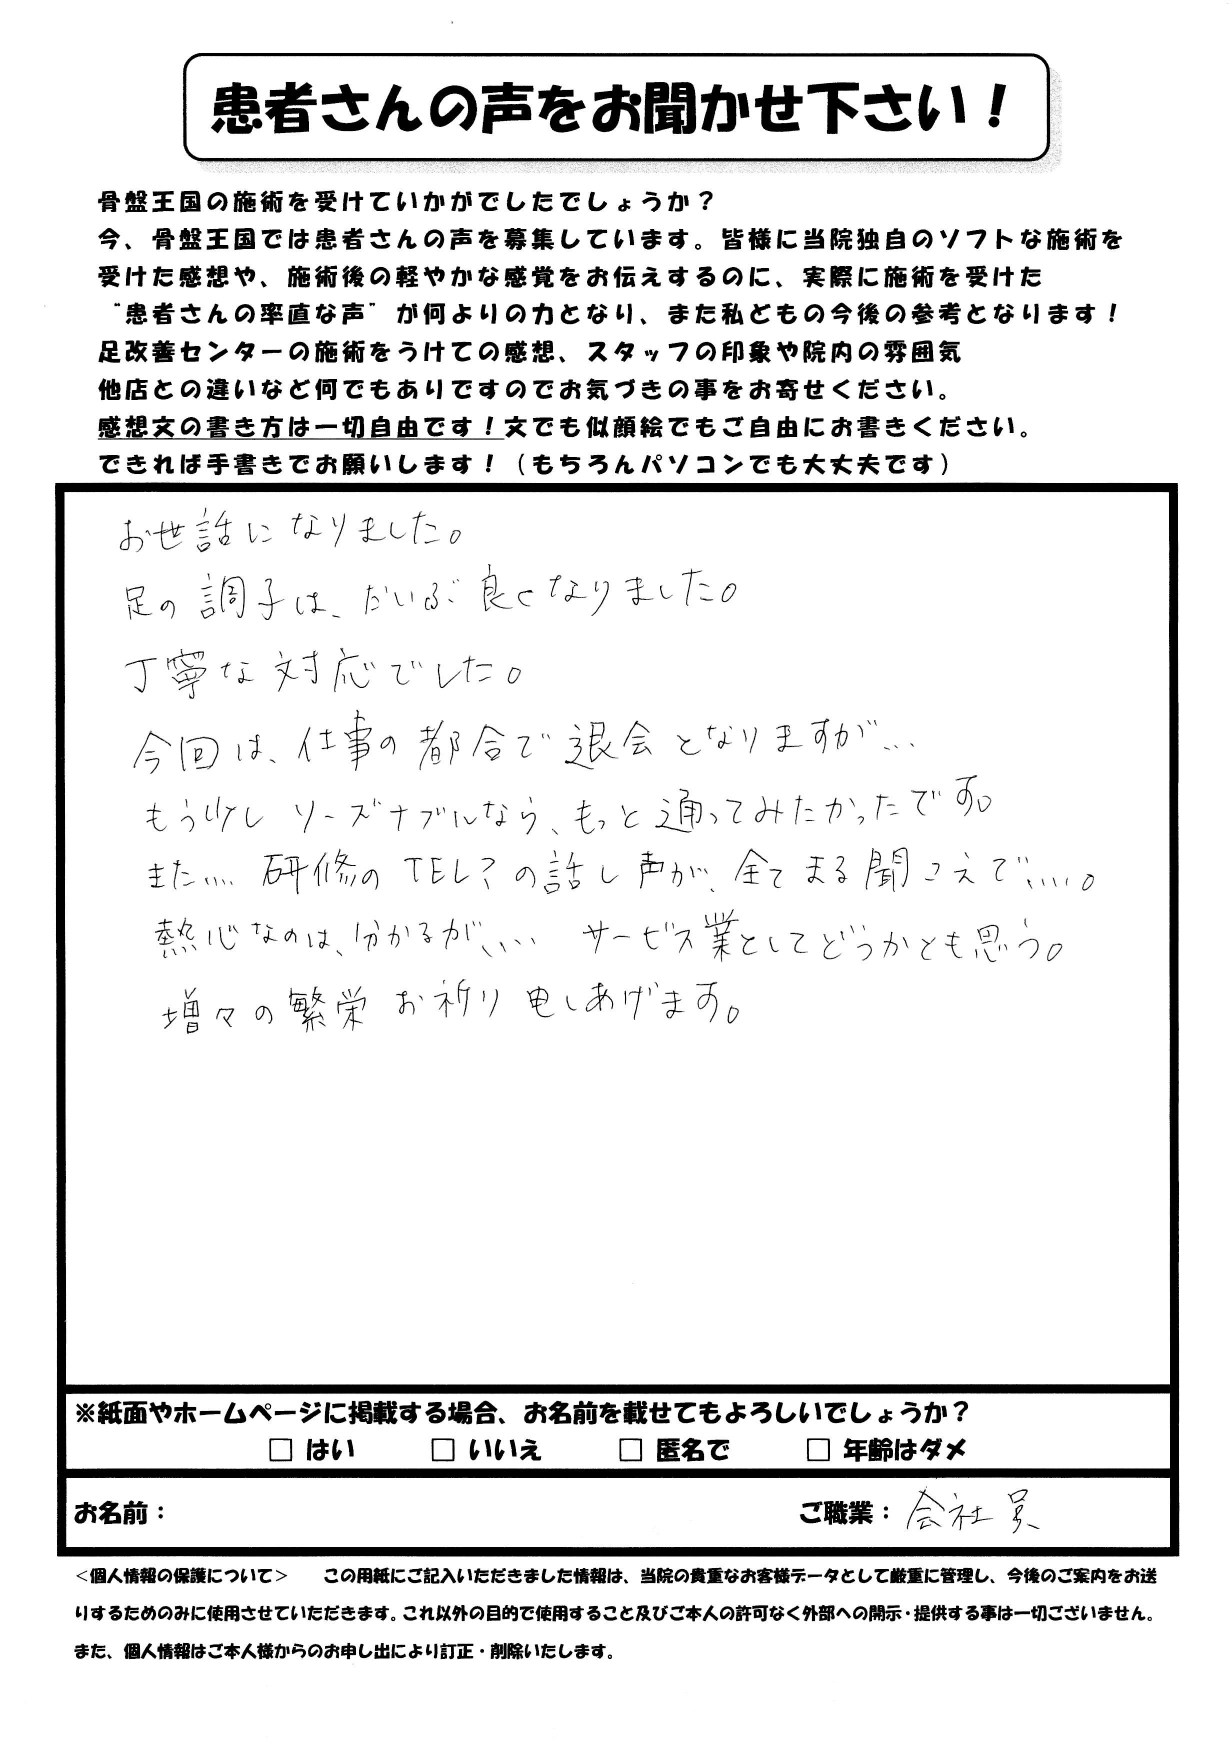 患者さんの声をお聞かせ下さい！
骨盤王国の施術を受けていかがでしたでしょうか？
今、骨盤王国では患者さんの声を募集しています。皆様に当院独自のソフトな施術を
受けた感想や、施術後の軽やかな感覚をお伝えするのに、実際に施術を受けた
“患者さんの率直な声” が何よりの力となり、また私どもの今後の参考となります！
足改善センターの施術をうけての感想、スタッフの印象や院内の雰囲気
他店との違いなど何でもありですのでお気づきの事をお寄せください。
感想文の書き方は一切自由です！文でも似顔絵でもご自由にお書きください。
できれば手書きでお願いします！（もちろんパソコンでも大丈夫です）
お世話になりました。
足の調子は、だいぶ良くなりました。
丁寧な対応でした。
今回は、仕事の都合で退会となりますが…
もう少しリーズナブルなら、もっと通ってみたかったです。
また… 研修のTEL？の話し声が、全てまる聞こえで….。
熱心なのは、分かるが、… サービス業としてどうかとも思う。
増々の繁栄お祈り申しあげます。
※紙面やホームページに掲載する場合、お名前を載せてもよろしいでしょうか？
□ はい □ いいえ □ 匿名で □ 年齢はダメ
お名前： ご職業：会社員
＜個人情報の保護について＞ この用紙にご記入いただきました情報は、当院の貴重なお客様データとして厳重に管理し、今後のご案内をお送
りするためのみに使用させていただきます。これ以外の目的で使用すること及びご本人の許可なく外部への開示・提供する事は一切ございません。
また、個人情報はご本人様からのお申し出により訂正・削除いたします。